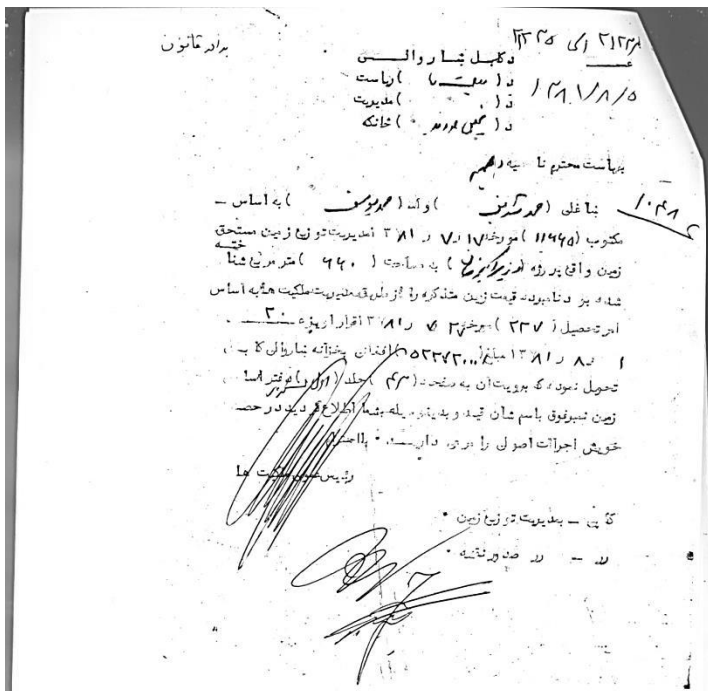 برادر قانون
۲۱۲۳۸ الی ۲۲۲۵
د کابل ښاروالی
۱۳۸۱/۸/۵
د ( ملکیت ها ) ریاست
د ( ) مدیریت
د ( ) څانګه
بریاست محترم ناحیه دهم
۱۰۴۸
ښاغلی ( محمد شریف ) ولد ( محمد یوسف ) به اساس –
مکتوب ( ۱۱۶۶۵ ) مورخه ۱۷ ر ۷ ر ۱۳۸۱ مدیریت توزیع زمین مستحق
زمین واقع پروژه ( وزیر اکبرخان ) به مساحت ( ۶۶۰ ) متر مربع شنا
خته
شده بر د نامبرده قیمت زمین متذکره را از طریق مدیریت ملکیت ها به اساس
امر تحصیل ( ۲۲۷ ) مورخه ۲۷ ر ۷ ر ۱۳۸۱ آویز ۲۰
۱ ر ۸ ر ۱۳۸۱ مبلغ ( ) افغانی بخزانه ښاروالی کابل
تحویل نموده که برویت آن به صفحه ( ۴۳ ) جلد ( اول ) دفتر اساس
زمین نمبر فوق باسم شان قید و بدینوسیله بشما اطلاع گردید در حصه
خویش اجراات اصولی را مرعی دارید . با احترام
رئیس ملکیت ها
کاپی – بمدیریت توزیع زمین .
رر – رر